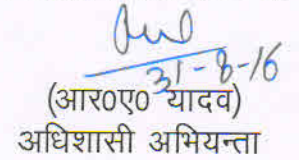 31-8-16
(आर०ए० यादव)
अधिशासी अभियन्ता